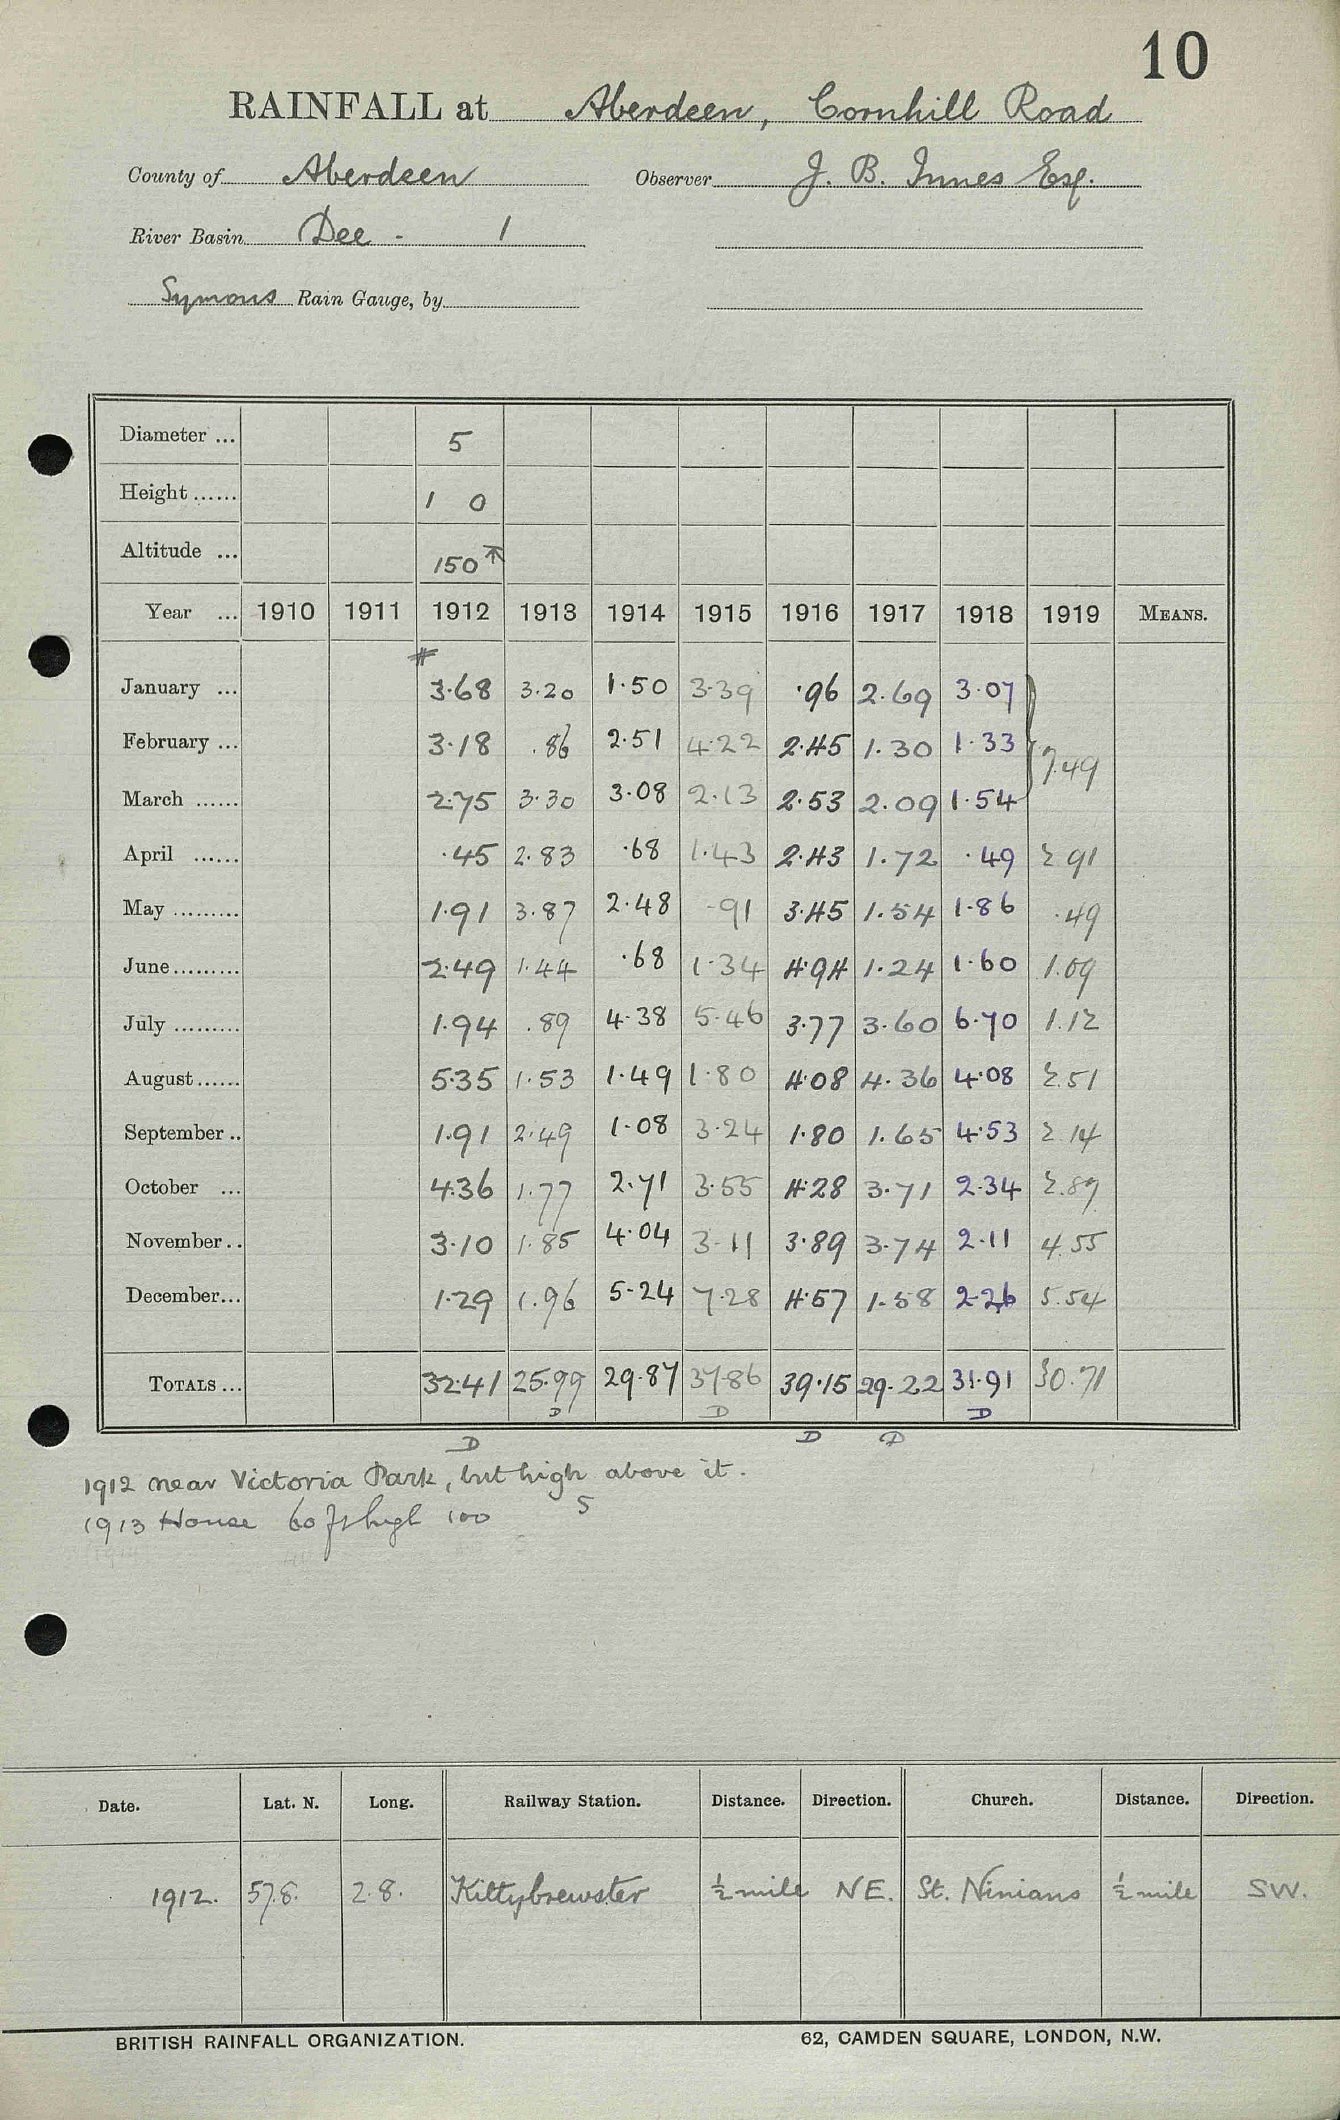 10
RAINFALL at Aberdeen, Cornhill Road
County of Aberdeen Observer J. B. Innes Esq.
River Basin Dee - 1
Symons Rain Gauge, by
Diameter ... 5
Height ...... 1 0
Altitude ... 150
Year ... 1910 1911 1912 1913 1914 1915 1916 1917 1918 1919 MEANS.
January ... 3.68 3.20 1.50 3.39 .96 2.69 3.07
February ... 3.18 .86 2.51 4.22 2.45 1.30 1.33 7.49
March ...... 2.75 3.30 3.08 2.13 2.53 2.09 1.54
April ...... .45 2.83 .68 1.43 2.43 1.72 .49 2.91
May ......... 1.91 3.87 2.48 .91 3.45 1.54 1.86 .49
June......... 2.49 1.44 .68 1.34 4.94 1.24 1.60 1.09
July ......... 1.94 .89 4.38 5.46 3.77 3.60 6.70 1.12
August...... 5.35 1.53 1.49 1.80 4.08 4.36 4.08 2.51
September .. 1.91 2.49 1.08 3.24 1.80 1.65 4.53 2.14
October ... 4.36 1.77 2.71 3.55 4.28 3.71 2.34 2.87
November .. 3.10 1.85 4.04 3.11 3.89 3.74 2.11 4.55
December... 1.29 1.96 5.24 7.28 4.57 1.58 2.26 5.54
TOTALS ... 32.41 25.99 29.87 37.86 39.15 29.22 31.91 30.71
D D D D D D
1912 near Victoria Park, but high above it.
1913 House 60 ft high 100 S
Date. Lat. N. Long. Railway Station. Distance. Direction. Church. Distance. Direction.
1912. 57.8. 2.8. Kittybrewster ½ mile NE. St. Ninians ½ mile SW.
BRITISH RAINFALL ORGANIZATION. 62, CAMDEN SQUARE, LONDON, N.W.